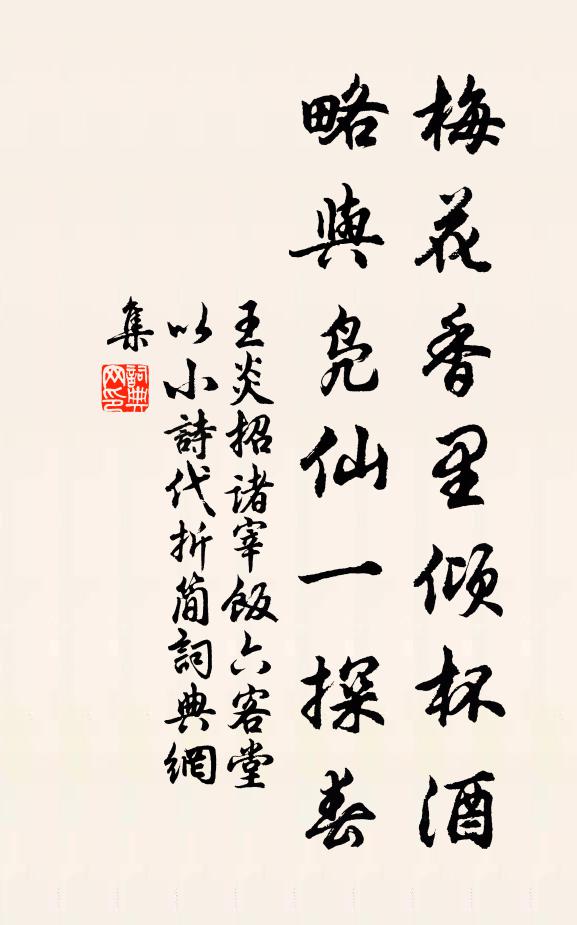 梅花香里倾杯酒
略與凫仙一探春
王炎招诸宰飯六客堂
以小詩代折简詞典網
集
詞典
网印